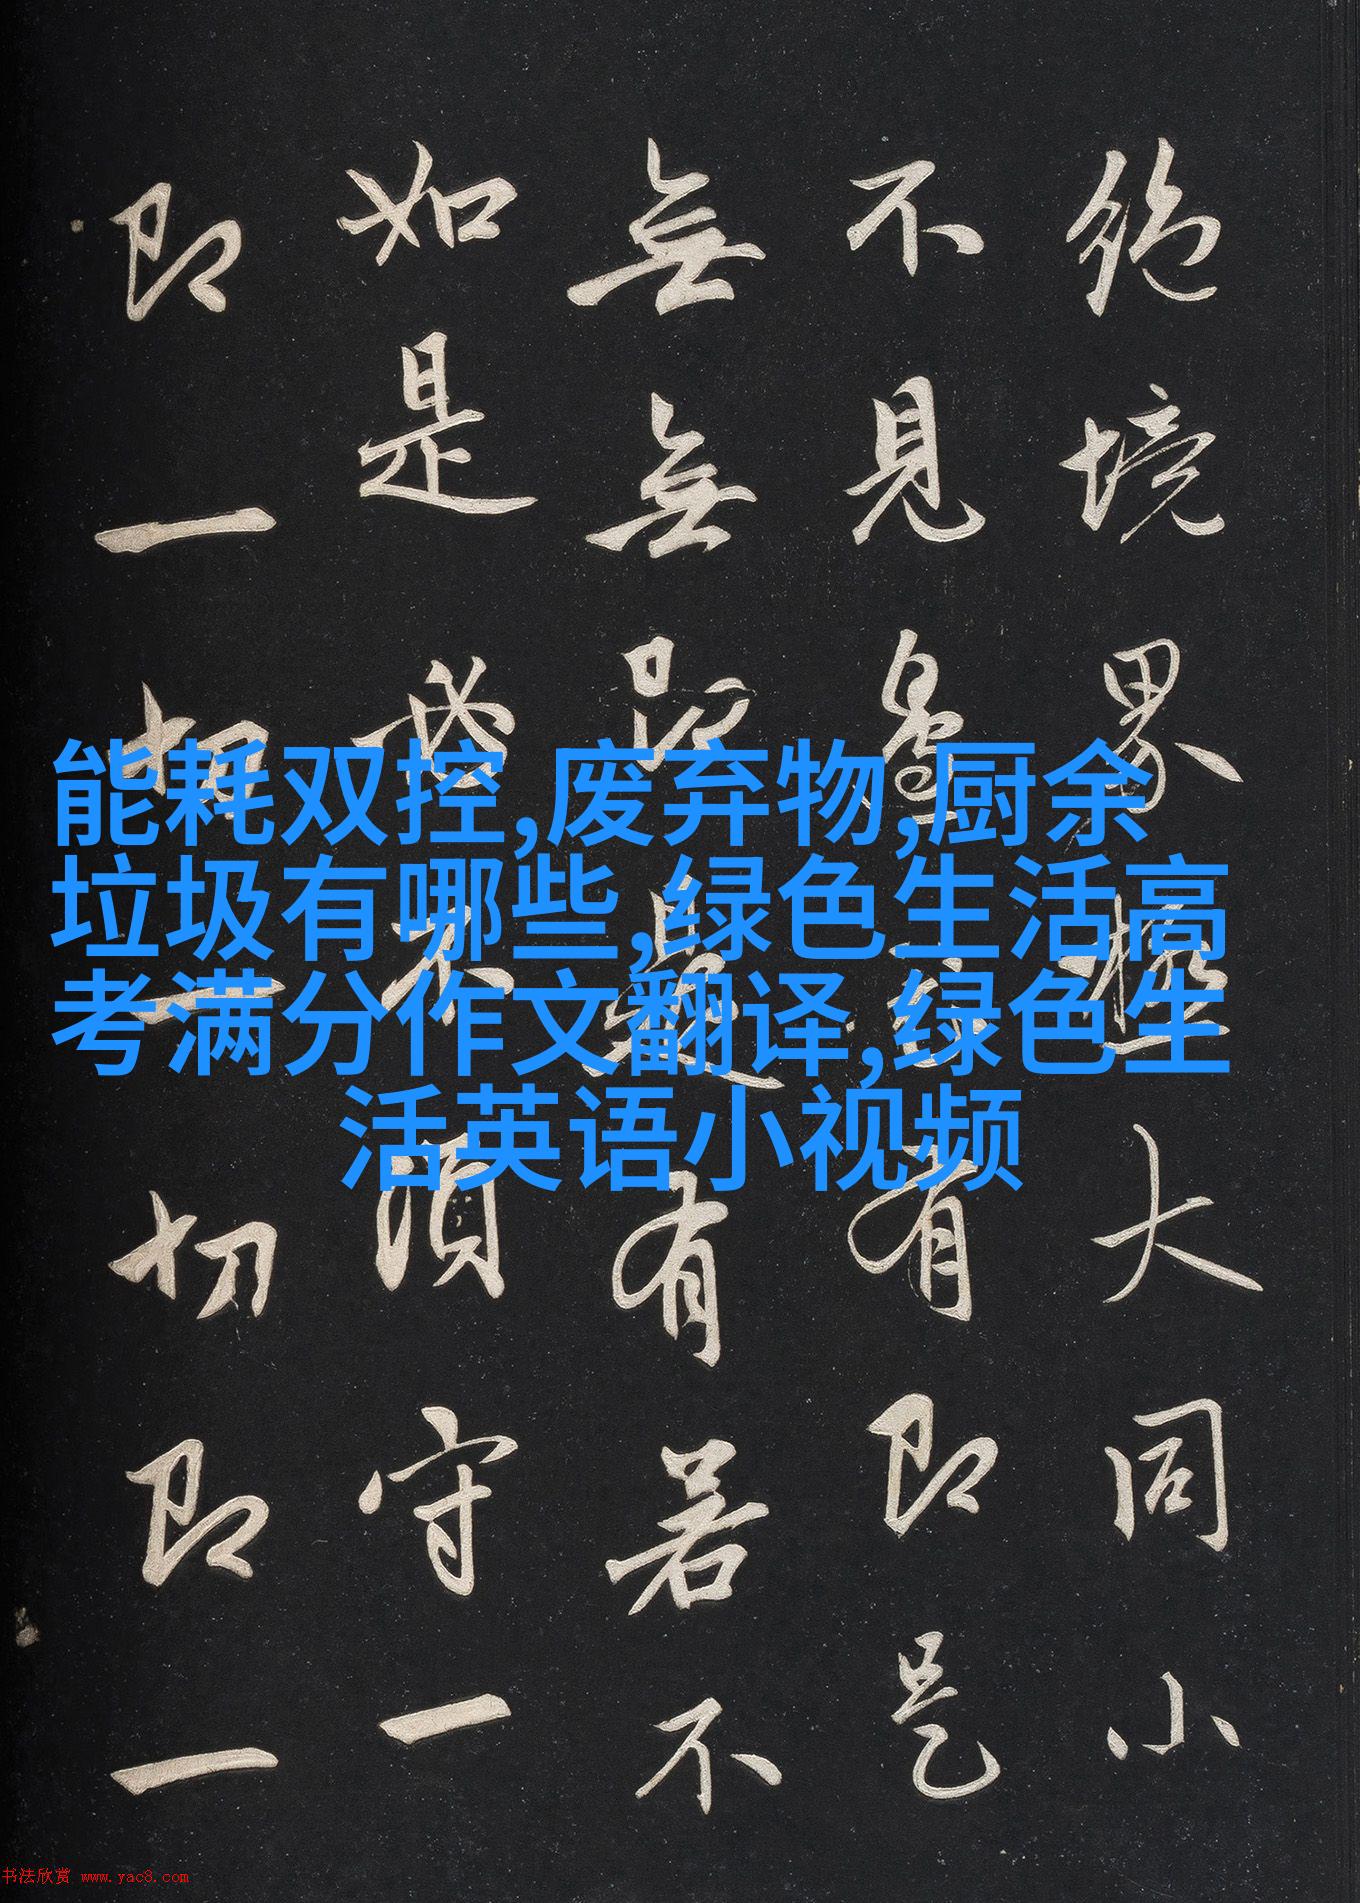 絶境界極大同小
不見邊表有即是
無無即是有若不
如是必不須守一
即一切一切即一
能耗双控,废弃物,厨余
垃圾有哪些,绿色生活高
考满分作文翻译,绿色生
活英语小视频
书法欣赏 www.yac8.com